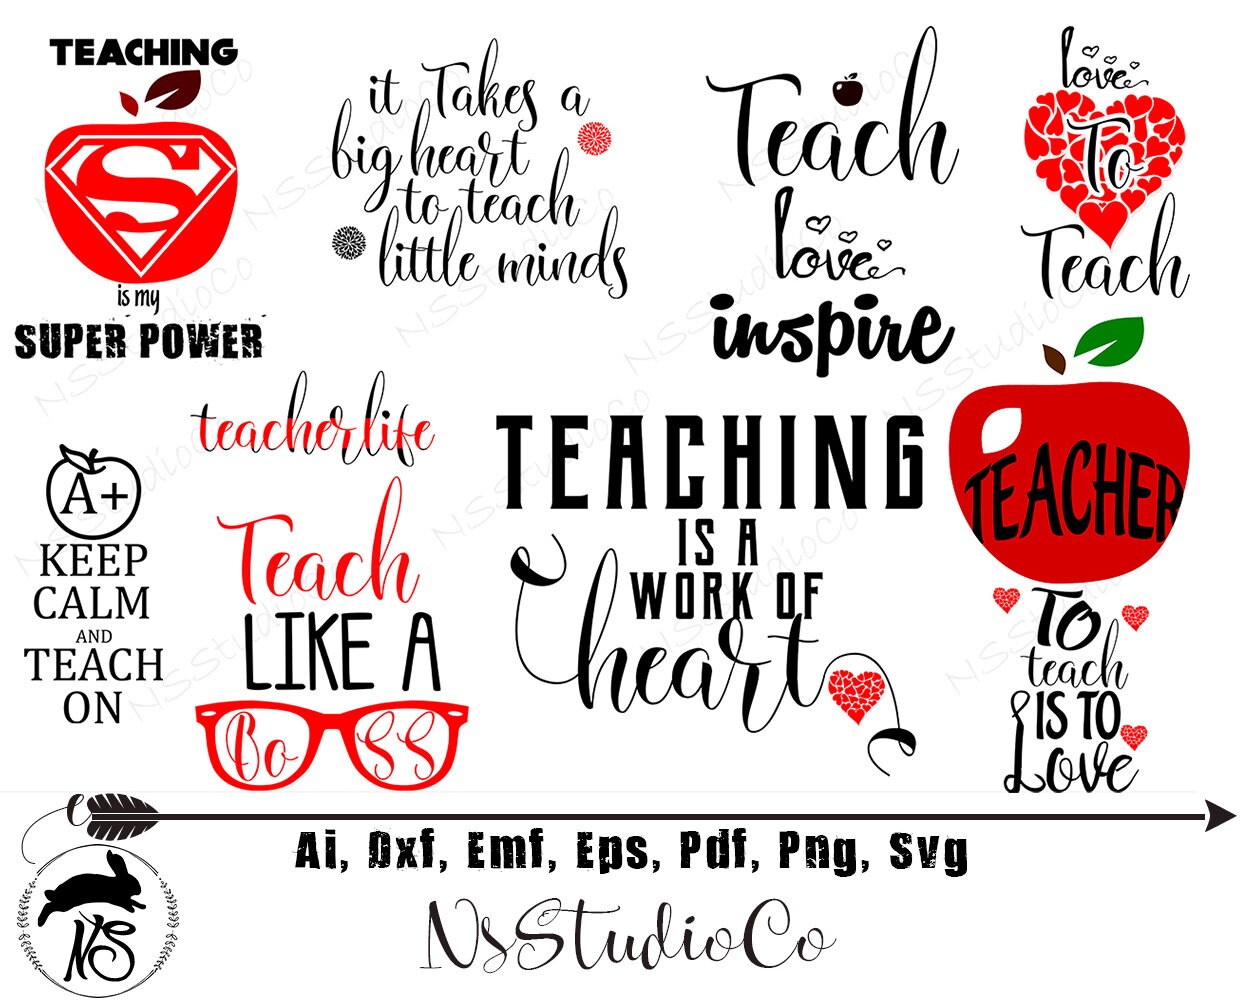 TEACHING
S
is my
SUPER POWER
it Takes a
big heart
to teach
little minds
Teach
love
inspire
love
To
Teach
A+
KEEP
CALM
AND
TEACH
ON
teacherlife
Teach
LIKE A
BOSS
TEACHING
IS A
WORK OF
heart
TEACHER
To
teach
IS TO
Love
Ai, Dxf, Emf, Eps, Pdf, Png, Svg
NS
NsStudioCo
NSStudioCo